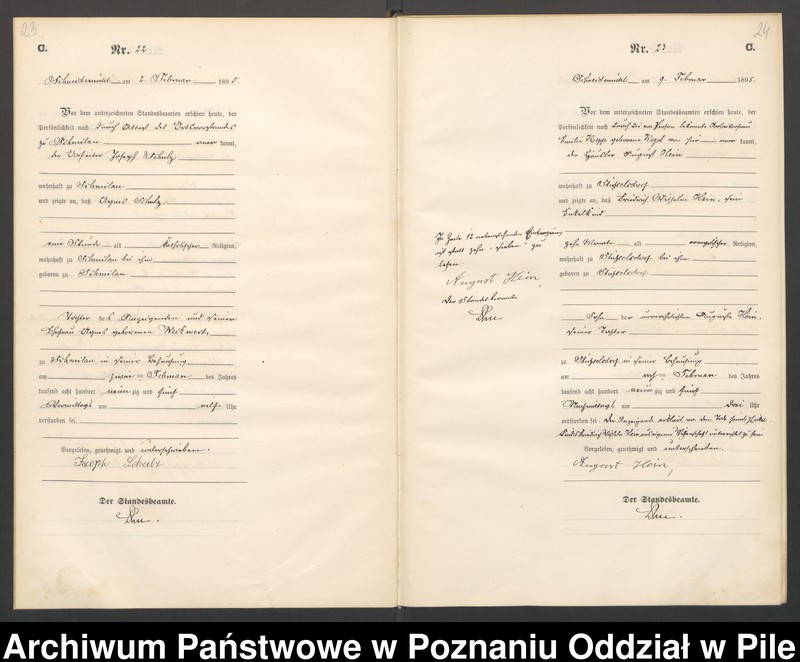 23
C.
Nr. 22
Schneidemühl am 2. Februar 1895.
Vor dem unterzeichneten Standesbeamten erschien heute, der
Persönlichkeit nach durch Attest des Ortsvorstandes
zu Schmilau aner kannt,
der Joseph Schulz
wohnhaft zu Schmilau
und zeigte an, daß Agnes Schulz
eine Stunde alt katholischer Religion,
wohnhaft zu Schmilau bei ihm
geboren zu Schmilau
Tochter des Anzeigenden und seiner
Ehefrau Agnes geborenen
zu Schmilau in seiner Behausung
am zweiten Februar des Jahres
tausend acht hundert neunzig und fünf
Vormittags um Uhr
verstorben sei.
Vorgelesen, genehmigt und unterschrieben.
Joseph Schulz
Der Standesbeamte.
24
Nr. 23
C.
Schneidemühl am 9. Februar 1895.
Vor dem unterzeichneten Standesbeamten erschien heute, der
Persönlichkeit nach durch die von Person bekannte Arbeiterfrau
Emilie geborene aner kannt,
der Häusler August Hein
wohnhaft zu Stüsselsdorf
und zeigte an, daß Friedrich Wilhelm Hein, sein
Enkelkind
zehn Monate alt evangelischer Religion,
wohnhaft zu Stüsselsdorf bei ihm
geboren zu Stüsselsdorf
Sohn der unverehelichten Auguste Hein,
seiner Tochter
zu Stüsselsdorf in seiner Behausung
am achten Februar des Jahres
tausend acht hundert neunzig und fünf
Nachmittags um drei Uhr
verstorben sei. Der Anzeigende erklärt, von dem Tode seines Enkel-
kindes Friedrich Wilhelm Hein aus eigener Wissenschaft unterrichtet zu sein
Vorgelesen, genehmigt und unterschrieben.
August Hein,
Der Standesbeamte.
Zu Zeile 12 nebenstehender Eintragung
ist statt zehn "sieben" zu
lesen.
August Hein,
Der Standesbeamte
Archiwum Państwowe w Poznaniu Oddział w Pile